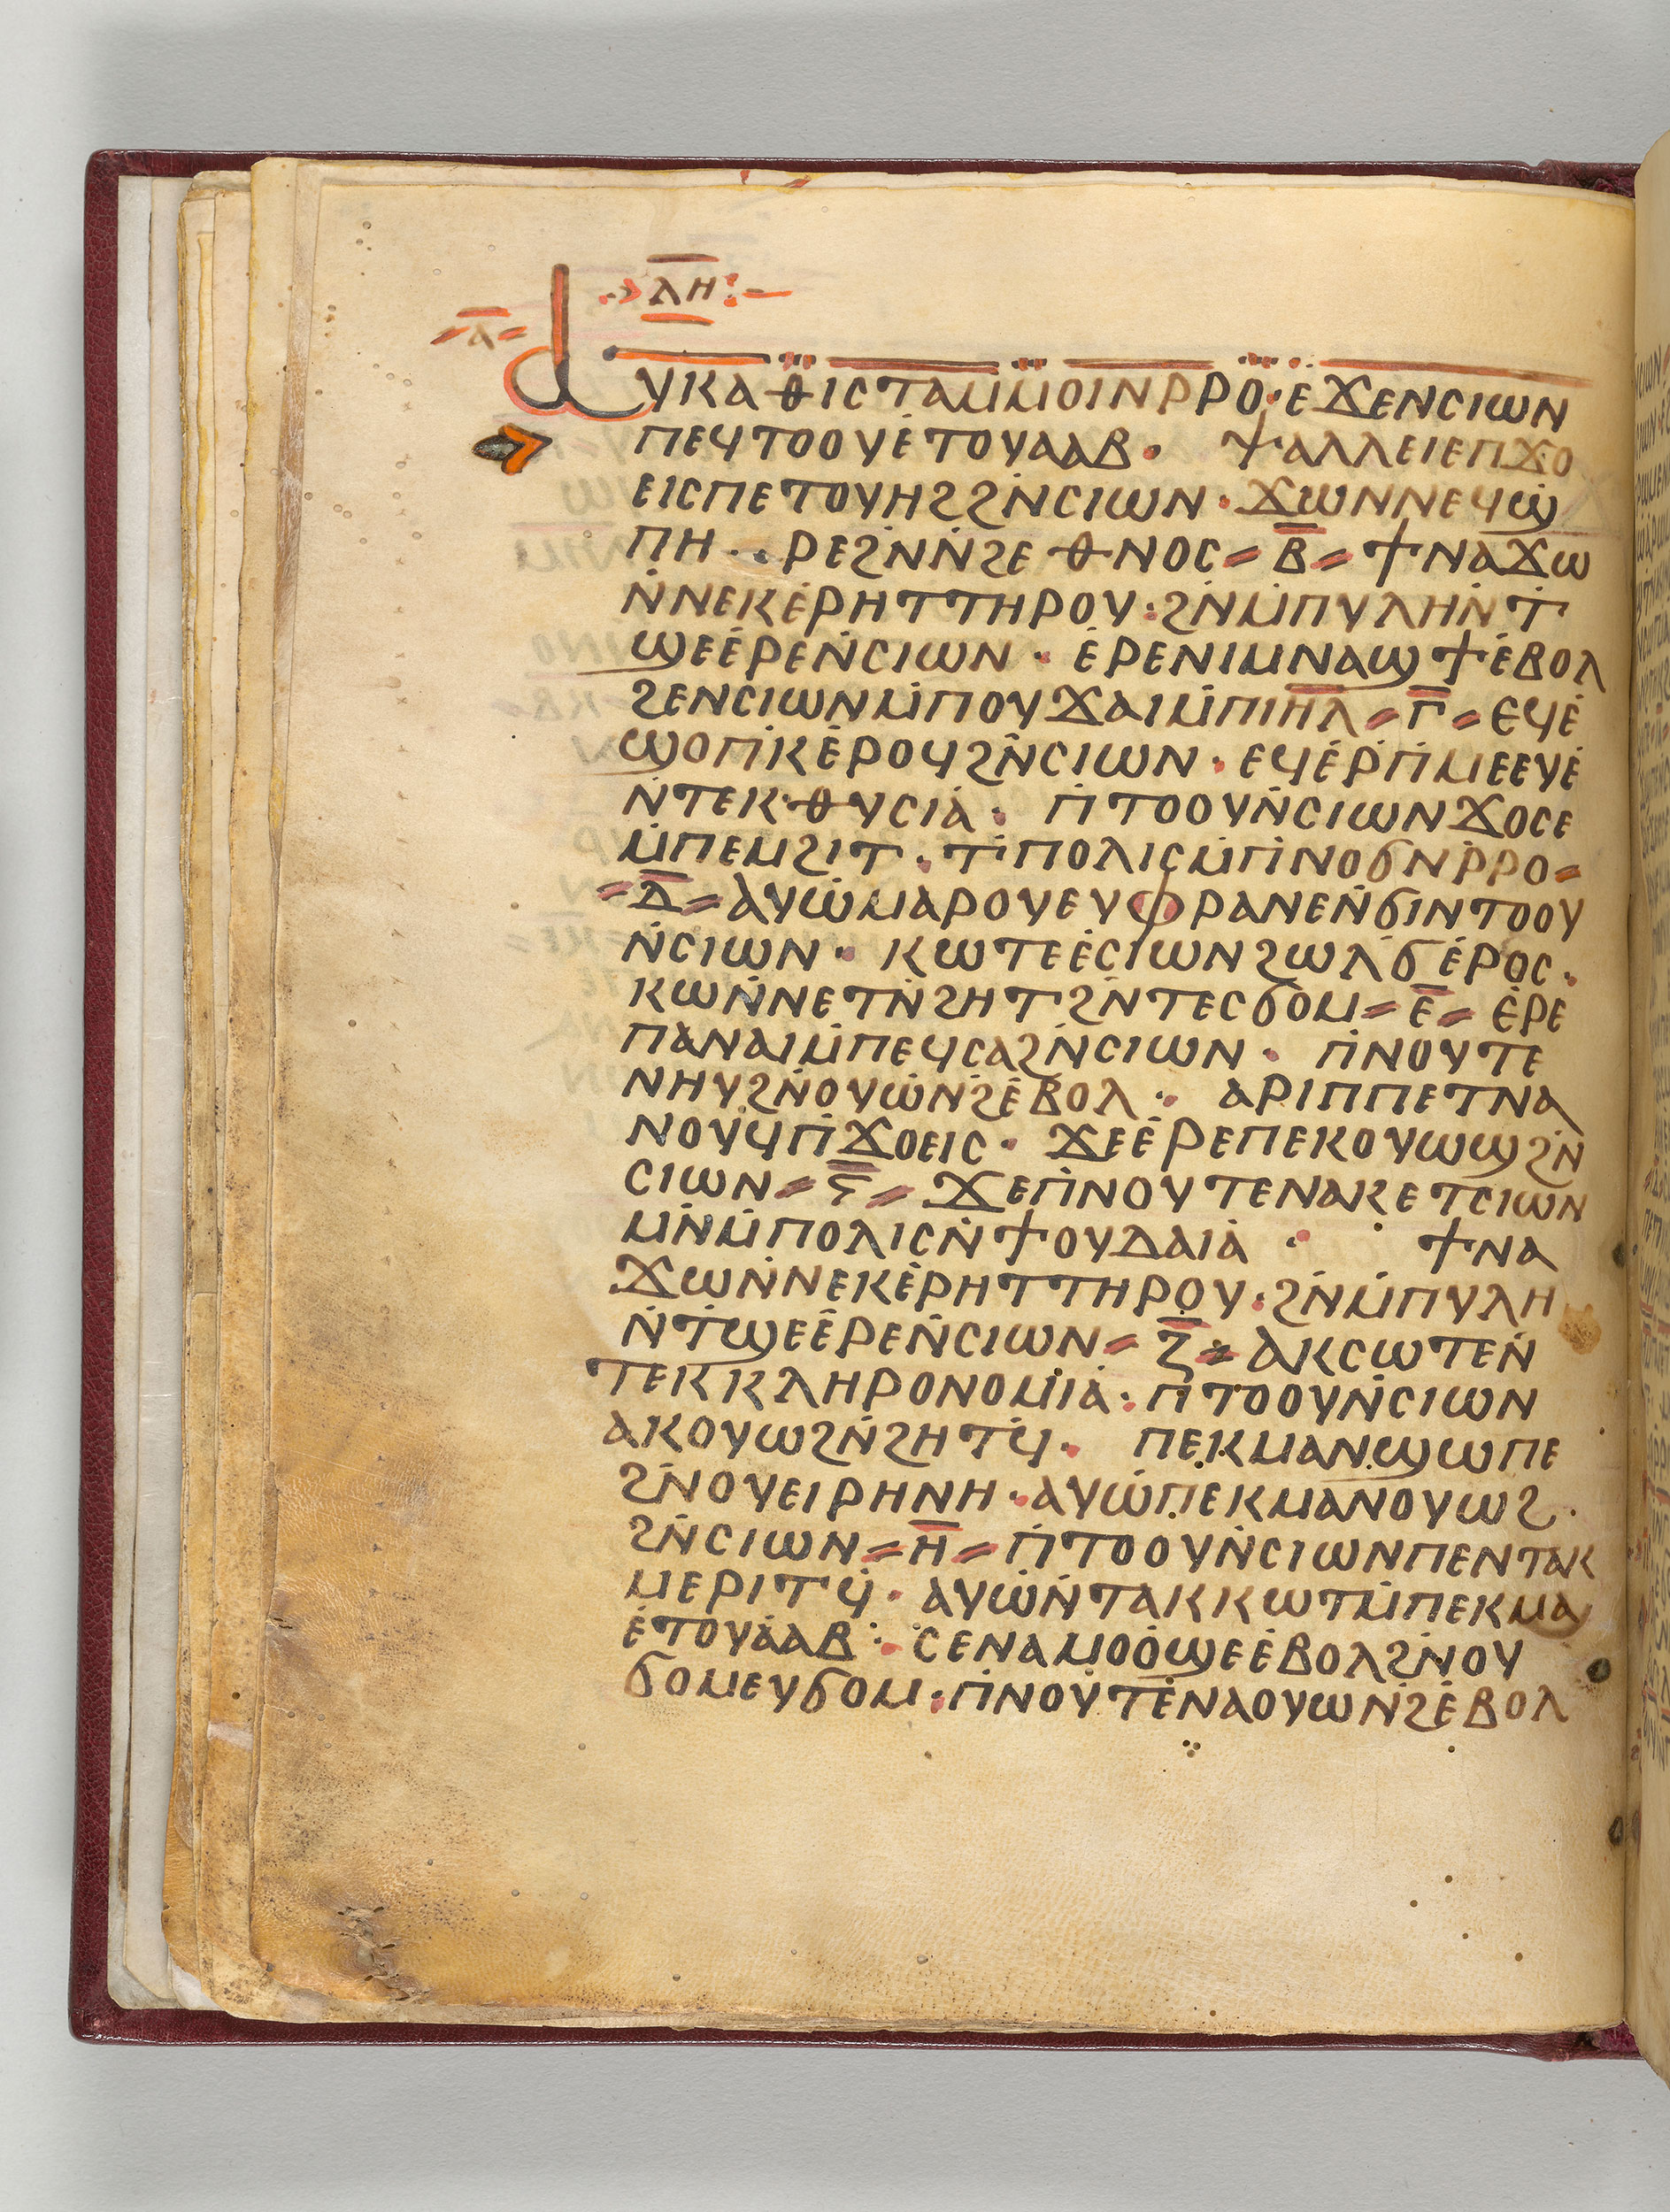 ⲗⲏ
ⲁ̅
ⲁⲩⲕⲁⲑⲓⲥⲧⲁⲙ̇ⲙⲟⲓⲛⲣⲣⲟ·ⲉϫⲉⲛⲥⲓⲱⲛ
ⲡⲉϥⲧⲟⲟⲩⲉ̇ⲧⲟⲩⲁⲁⲃ· ⲯⲁⲗⲗⲉⲓⲉⲡϫⲟ
ⲉⲓⲥⲡⲉⲧⲟⲩⲏϩϩⲛ̇ⲥⲓⲱⲛ·ϫⲱⲛⲛⲉϥϣ
ⲡⲏ··ⲣⲉϩⲛ̇ⲛ̇ϩⲉⲑⲛⲟⲥ=ⲃ̅=ϯⲛⲁϫⲱ
ⲛ̇ⲛⲉⲕⲉ̇ⲣⲏⲧⲧⲏⲣⲟⲩ:ϩⲛ̇ⲙ̇ⲡⲩⲗⲏⲛ̇ⲧ
ϣⲉⲉ̇ⲣⲉⲛ̇ⲥⲓⲱⲛ· ⲉ̇ⲣⲉⲛⲓⲙⲛⲁϣϯⲉ̇ⲃⲟⲗ
ϩⲉⲛⲥⲓⲱⲛⲙ̇ⲡⲟⲩϫⲁⲓⲙ̇ⲡⲓⲏ̅ⲗ̅=ⲅ̅=ⲉϥⲉ̇
ϣⲟⲡ̇ⲕⲉ̇ⲣⲟϥϩⲛ̇ⲥⲓⲱⲛ·ⲉϥⲉ̇ⲣ̇ⲡ̇ⲙⲉⲉⲩⲉ̇
ⲛ̇ⲧⲉⲕⲑⲩⲥⲓⲁ̇: ⲡ̇ⲧⲟⲟⲩⲛ̇ⲥⲓⲱⲛϫⲟⲥⲉ
ⲙ̇ⲡⲉⲙϩⲓⲧ·ⲧ̇ⲡⲟⲗⲓⲥⲙ̇ⲡ̇ⲛⲟϭⲛ̇ⲣ̇ⲣⲟ=
=ⲇ̅=ⲁⲩⲱ̇ⲙⲁⲣⲟⲩⲉⲩⲫⲣⲁⲛⲉⲛ̇ϭⲓⲛⲧⲟⲟⲩ
ⲛ̇ⲥⲓⲱⲛ· ⲕⲱⲧⲉⲉ̇ⲥⲓⲱⲛϩⲱⲗϭⲉ̇ⲣⲟⲥ·
ⲕⲱⲛ̇ⲛⲉⲧⲛ̇ϩⲏⲧϩⲛ̇ⲧⲉⲥϭⲟⲙ=ⲉ̅=ⲉ̇ⲣⲉ
ⲡⲁⲛⲁⲓⲙ̇ⲡⲉϥⲥⲁϩⲛ̇ⲥⲓⲱⲛ· ⲡ̇ⲛⲟⲩⲧⲉ
ⲛⲏⲩϩⲛ̇ⲟⲩⲱ̇ⲛ̇ϩⲉ̇ⲃⲟⲗ: ⲁⲣⲓⲡⲡⲉⲧⲛⲁ
ⲛⲟⲩϥⲡ̇ϫⲟⲉⲓⲥ· ϫⲉⲉ̇ⲣⲉⲡⲉⲕⲟⲩⲱϣϩⲛ̇
ⲥⲓⲱⲛ=ⲋ̅=ϫⲉⲡ̇ⲛⲟⲩⲧⲉⲛⲁⲕⲉⲧⲥⲓⲱⲛ
ⲙⲛ̇ⲙ̇ⲡⲟⲗⲓⲥⲛ̇ϯⲟⲩⲇⲁⲓⲁ̇ : ϯⲛⲁ
ϫⲱⲛ̇ⲛⲉⲕⲉ̇ⲣⲏⲧⲧⲏⲣⲟⲩ:ϩⲛ̇ⲙ̇ⲡⲩⲗⲏ
ⲛ̇ⲧ̇ϣⲉⲉ̇ⲣⲉⲛ̇ⲥⲓⲱⲛ=ⲍ̅=ⲁⲕⲥⲱⲧⲉⲛ̇
ⲧⲉⲕⲕⲗⲏⲣⲟⲛⲟⲙⲓⲁ̇:ⲡ̇ⲧⲟⲟⲩⲛ̇ⲥⲓⲱⲛ
ⲁⲕⲟⲩⲱϩⲛ̇ϩⲏⲧϥ̇· ⲡⲉⲕⲙⲁⲛϣⲱⲡⲉ
ϩⲛ̇ⲟⲩⲉⲓⲣⲏⲛⲏ·ⲁⲩⲱ̇ⲡⲉⲕⲙⲁⲛⲟⲩⲱϩ·
ϩⲛ̇ⲥⲓⲱⲛ=ⲏ̅=ⲡ̇ⲧⲟⲟⲩⲛ̇ⲥⲓⲱⲛⲡⲉⲛⲧⲁⲕ
ⲙⲉⲣⲓⲧϥ̇· ⲁⲩⲱ̇ⲛ̇ⲧⲁⲕⲕⲱⲧⲙ̇ⲡⲉⲕⲙⲁ
ⲉ̇ⲧⲟⲩⲁ̇ⲁⲃ: ⲥⲉⲛⲁⲙⲟⲟ̇ϣⲉⲉ̇ⲃⲟⲗϩⲛ̇ⲟⲩ
ϭⲟⲙⲉⲩϭⲟⲙ:ⲡ̇ⲛⲟⲩⲧⲉ̇ⲛⲁⲟⲩⲱⲛ̇ϩⲉ̇ⲃⲟⲗ